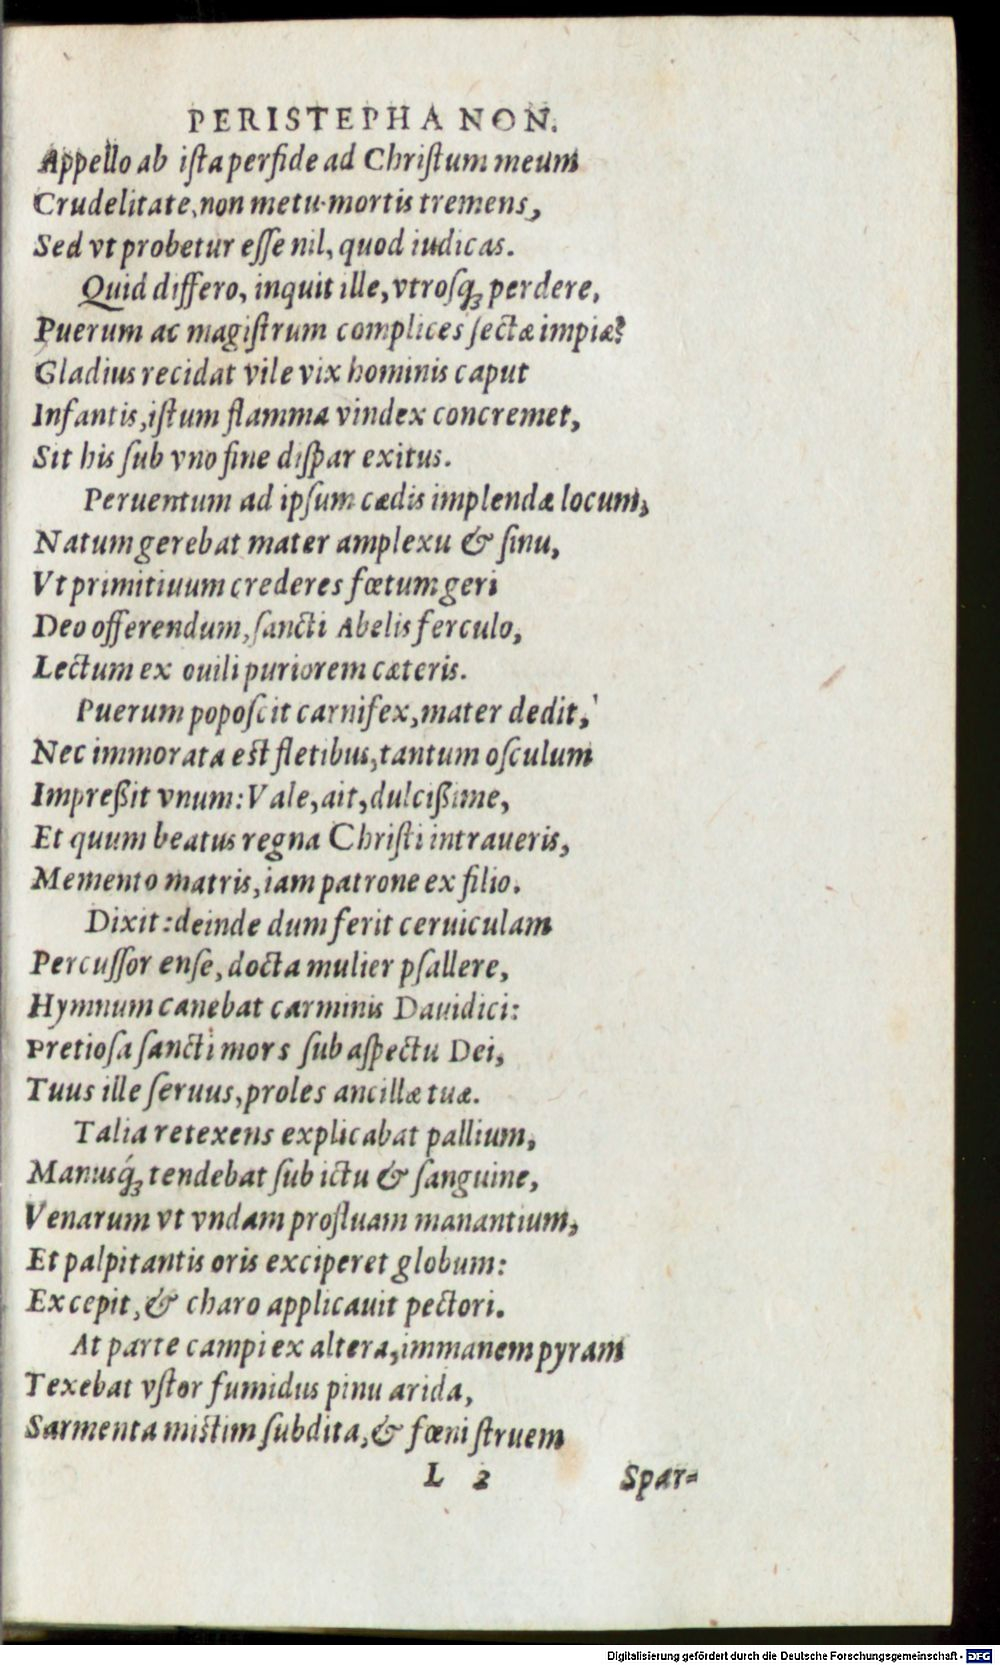 PERISTEPHANON.
Appello ab iſta perfide ad Chriſtum meum
Crudelitate, non metu mortis tremens,
Sed vt probetur eſſe nil, quod iudicas.
Quid differo, inquit ille, vtroſq́ꝫ perdere,
Puerum ac magiſtrum complices ſectæ impiæ?
Gladius recidat vile vix hominis caput
Infantis, iſtum flamma vindex concremet,
Sit his ſub vno fine diſpar exitus.
Peruentum ad ipſum cædis implendæ locum,
Natum gerebat mater amplexu & ſinu,
Vt primitiuum crederes fœtum geri
Deo offerendum, ſancti Abelis ferculo,
Lectum ex ouili puriorem cæteris.
Puerum popoſcit carnifex, mater dedit,
Nec immorata est fletibus, tantum oſculum
Impreßit vnum: Vale, ait, dulcißime,
Et quum beatus regna Chriſti intraueris,
Memento matris, iam patrone ex filio.
Dixit: deinde dum ferit ceruiculam
Percuſſor enſe, docta mulier pſallere,
Hymnum canebat carminis Dauidici:
Pretioſa ſancti mors ſub aſpectu Dei,
Tuus ille ſeruus, proles ancillæ tuæ.
Talia retexens explicabat pallium,
Manusq́ꝫ tendebat ſub ictu & ſanguine,
Venarum vt vndam profluam manantium,
Et palpitantis oris exciperet globum:
Excepit, & charo applicauit pectori.
At parte campi ex altera, immanem pyram
Texebat vſtor fumidus pinu arida,
Sarmenta mistim ſubdita, & fœni ſtruem
L 2 Spar=
Digitalisierung gefördert durch die Deutsche Forschungsgemeinschaft - DFG